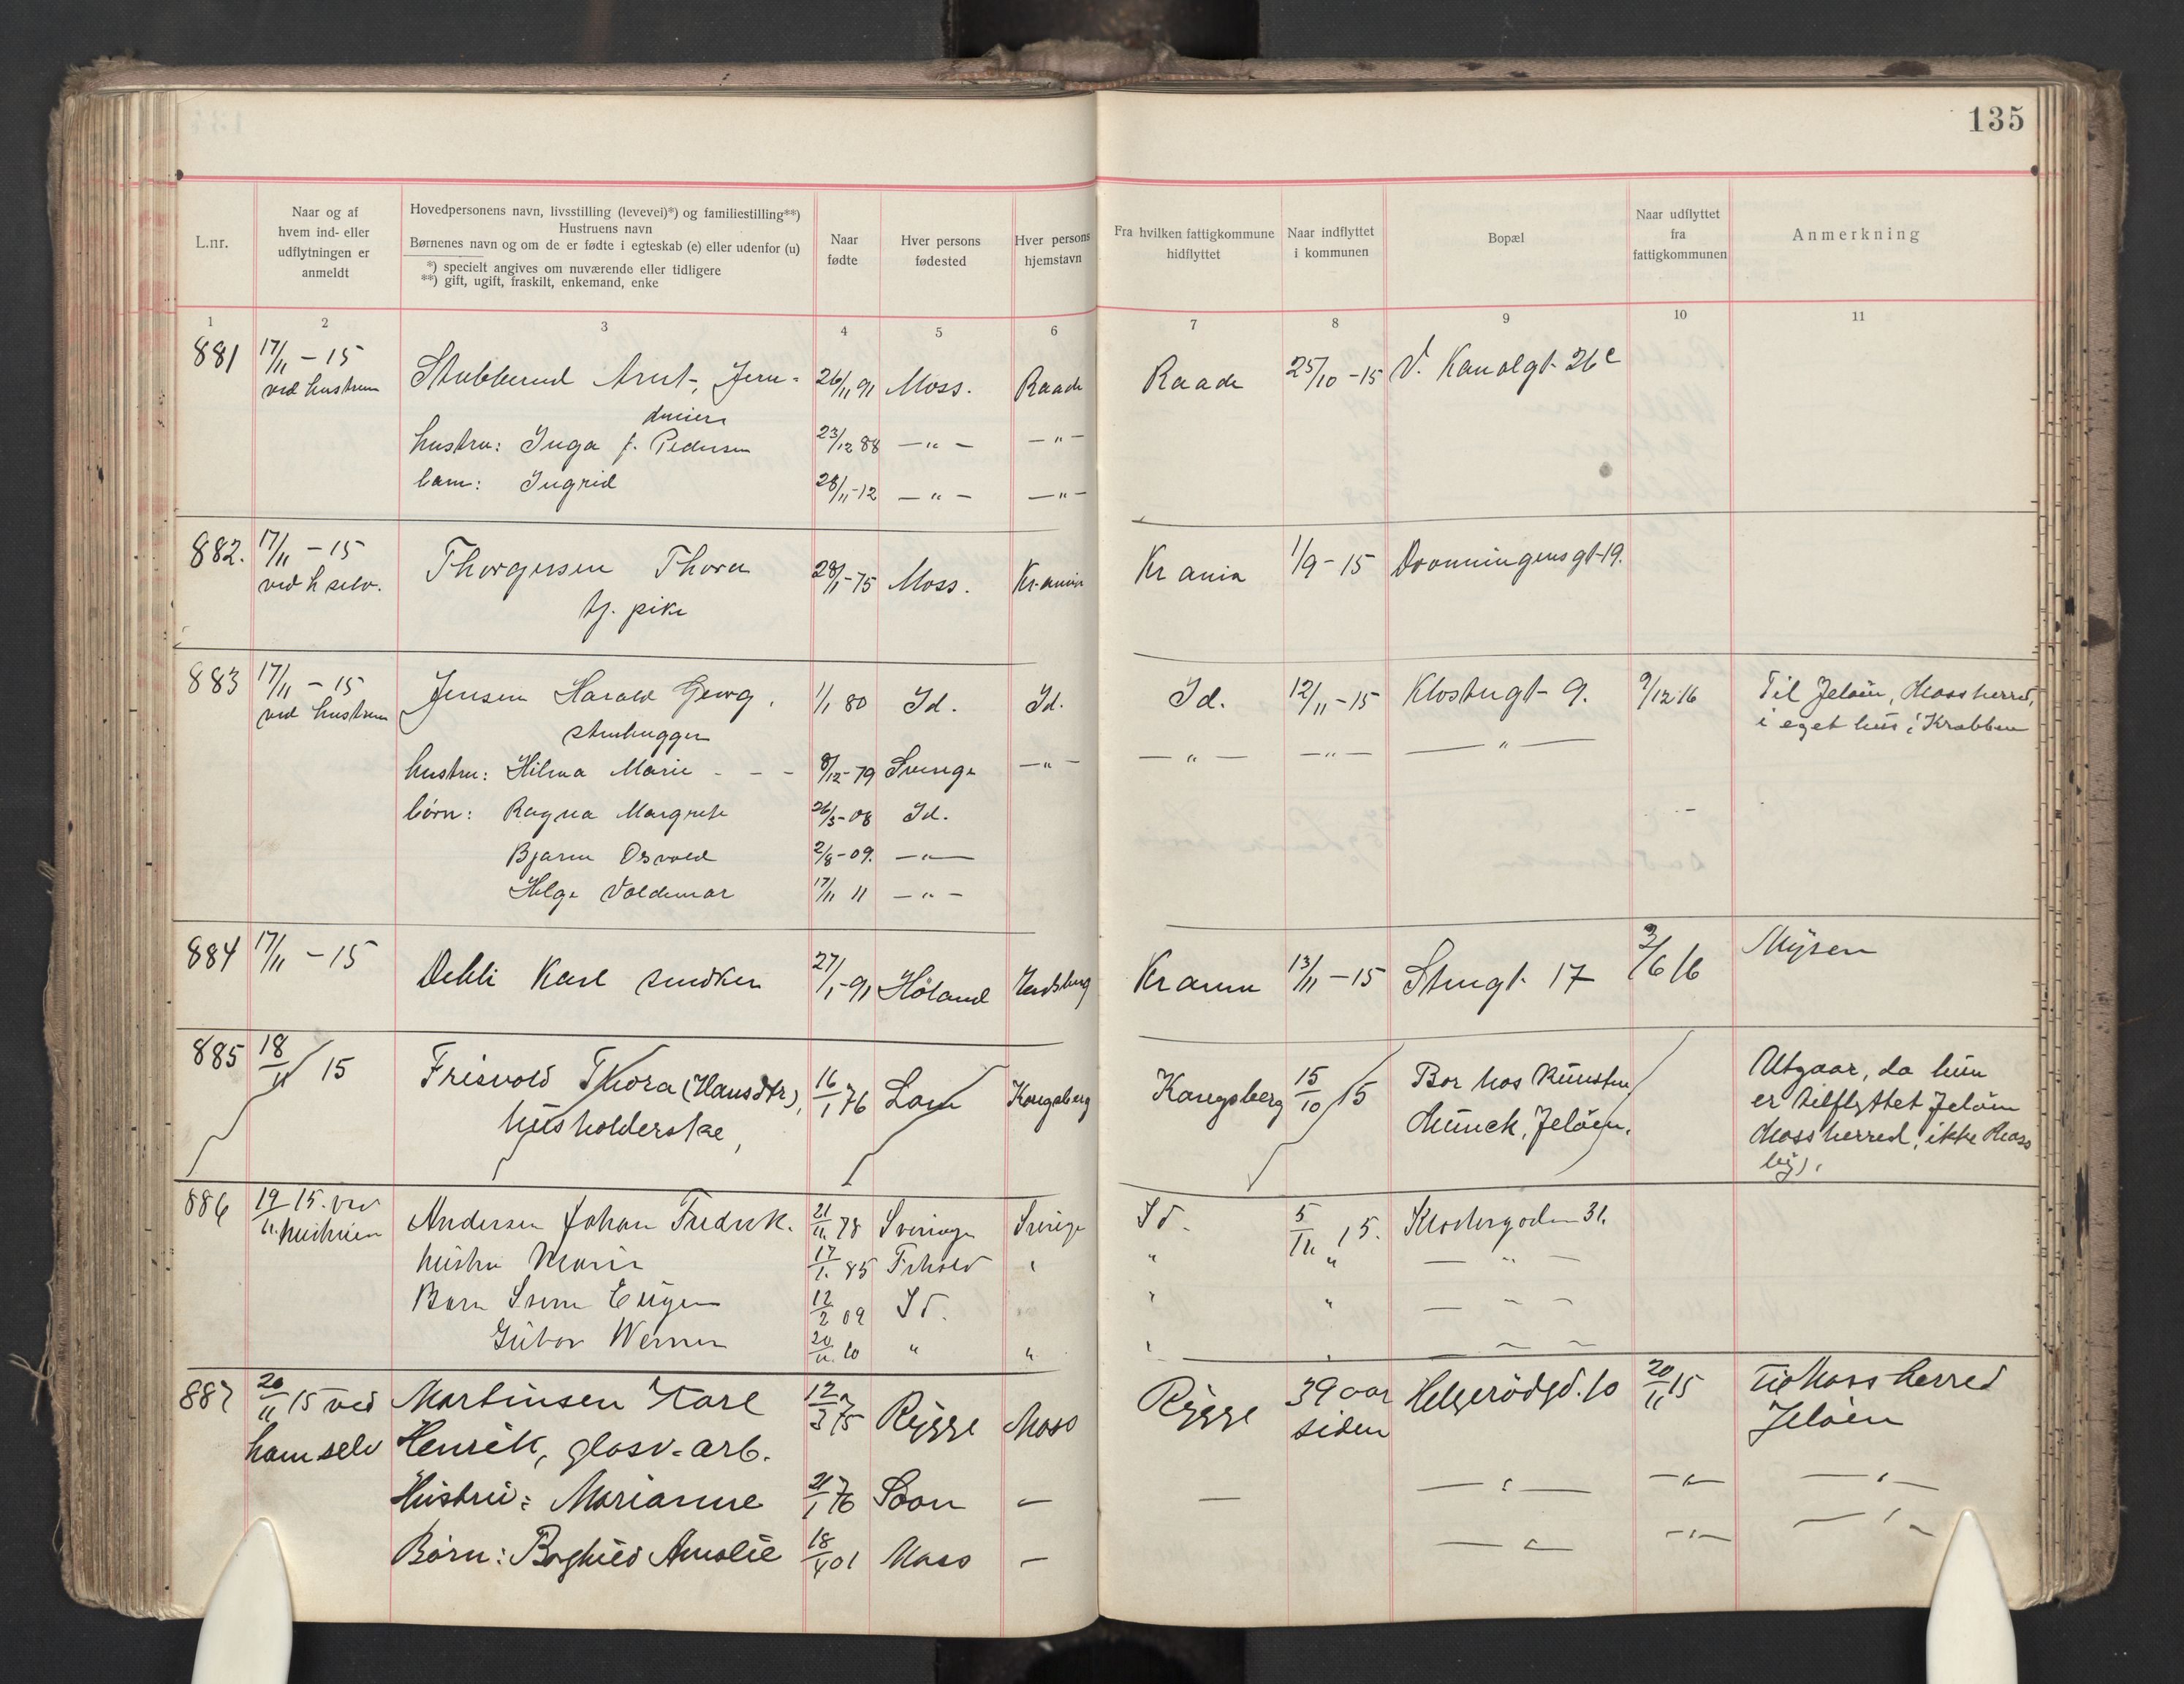 135
L.nr.
Naar og af
hvem ind- eller
udflytningen er
anmeldt
Hovedpersonens navn, livsstilling (levevei)*) og familiestilling**)
Hustruens navn
Børnenes navn og om de er fødte i egteskab (e) eller udenfor (u)
*) specielt angives om nuværende eller tidligere
**) gift, ugift, fraskilt, enkemand, enke
Naar
fødte
Hver persons
fødested
Hver persons
hjemstavn
Fra hvilken fattigkommune
hidflyttet
Naar indflyttet
i kommunen
Bopæl
Naar udflyttet
fra
fattigkommunen
Anmerkning
1 2 3 4 5 6 7 8 9 10 11
881 17/11 - 15 Stubberud Arnt, Jern- 26/11 91 Moss. Raade Raade 25/10 - 15 V. Kanalgt 26 c
ved hustruen
dreier
hustru: Inga f. Pedersen 23/12 88 — " — — " —
barn: Ingrid 28/11-12 — " — — " —
882. 17/11 - 15 Thorgersen Thora 28/1-75 Moss. Kr.ania Kr ania 1/9 - 15 Dronningensgt 19.
ved h selv.
tj. pike
883 17/11 - 15 Jensen Harald Georg, 1/1 80 Id. Id. Id. 12/11 - 15 Klostergt 9. 9/12 16 Til Jeløen, Moss herred,
ved hustruen i eget hus i Krabben
stenhugger
hustru: Hilma Marie - - - 8/12-79 Sverige — " — — " — — " — — " —
børn: Ragna Margrete 26/3-08 Id.
Bjarne Osvald 2/8-09. — " —
Helge Valdemar 17/11 11 — " —
884 17/11 - 15 Dehli Karl snedker 27/1-91 Høland Kr ania 13/11 - 15 Stengt 17 2/6 16 Mysen
885 18/11 15 Frisvold Thora (Hansdtr), 16/1 76 Lom Kongsberg Kongsberg 15/10 15 Bor hos Kunstm Utgaar, da hun
husholderske, Munck, Jeløen. er tilflyttet Jeløen
Moss herred, ikke Moss
by).
886 19/11 15. ved Andersen Johan Fredrik. 21/11 78 Sverige Sverige Id. 5/11 15. Klostergaden 31.
hustruen
hustru Marie 17/1. 85 Frhald " " " — " —
Barn Svene Eugen 12/2 09 Id. " " — " —
Gubor Werner 20/11. 10 " " " — " —
887 20/11 15 ved Martinsen Karl 12/3 75 Rygge Moss Rygge 39 aar Helgerødgd. 10 20/11 15 til Moss herred
ham selv Henrik, glasv.-arb. siden Jeløen
Hustru: Marianne 21/1 76 Soon — — — " — — " — — " —
Børn: Borghild Amalie 18/4 01 Moss — — " — — " — — " —